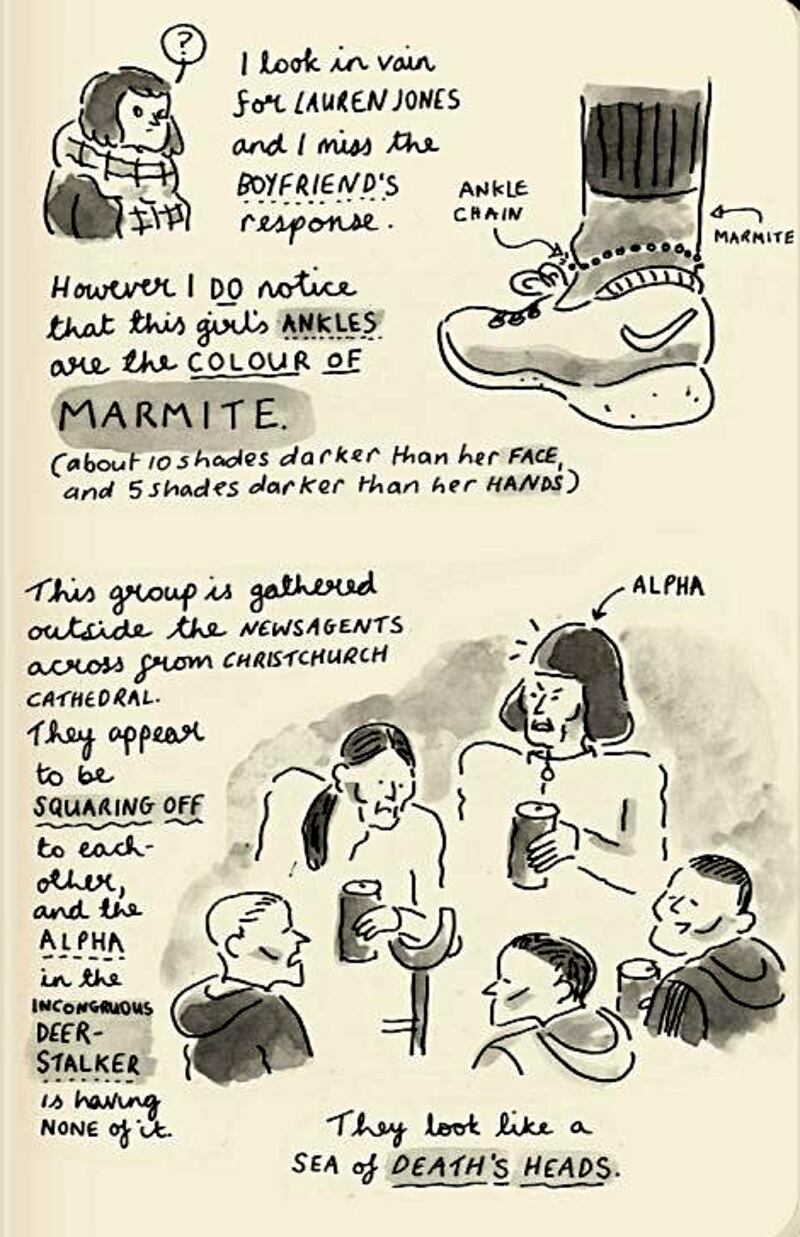 ?
I look in vain
for LAUREN JONES
and I miss the
BOYFRIEND'S
response.
ANKLE
CHAIN
MARMITE
However I DO notice
that this girl's ANKLES
are the COLOUR OF
MARMITE.
(about 10 shades darker than her FACE,
and 5 shades darker than her HANDS)
This group is gathered
outside the NEWSAGENTS
across from CHRISTCHURCH
CATHEDRAL.
They appear
to be
SQUARING OFF
to each-
other,
and the
ALPHA
in the
INCONGRUOUS
DEER-
STALKER
is having
NONE of it.
ALPHA
They look like a
SEA of DEATH'S HEADS.